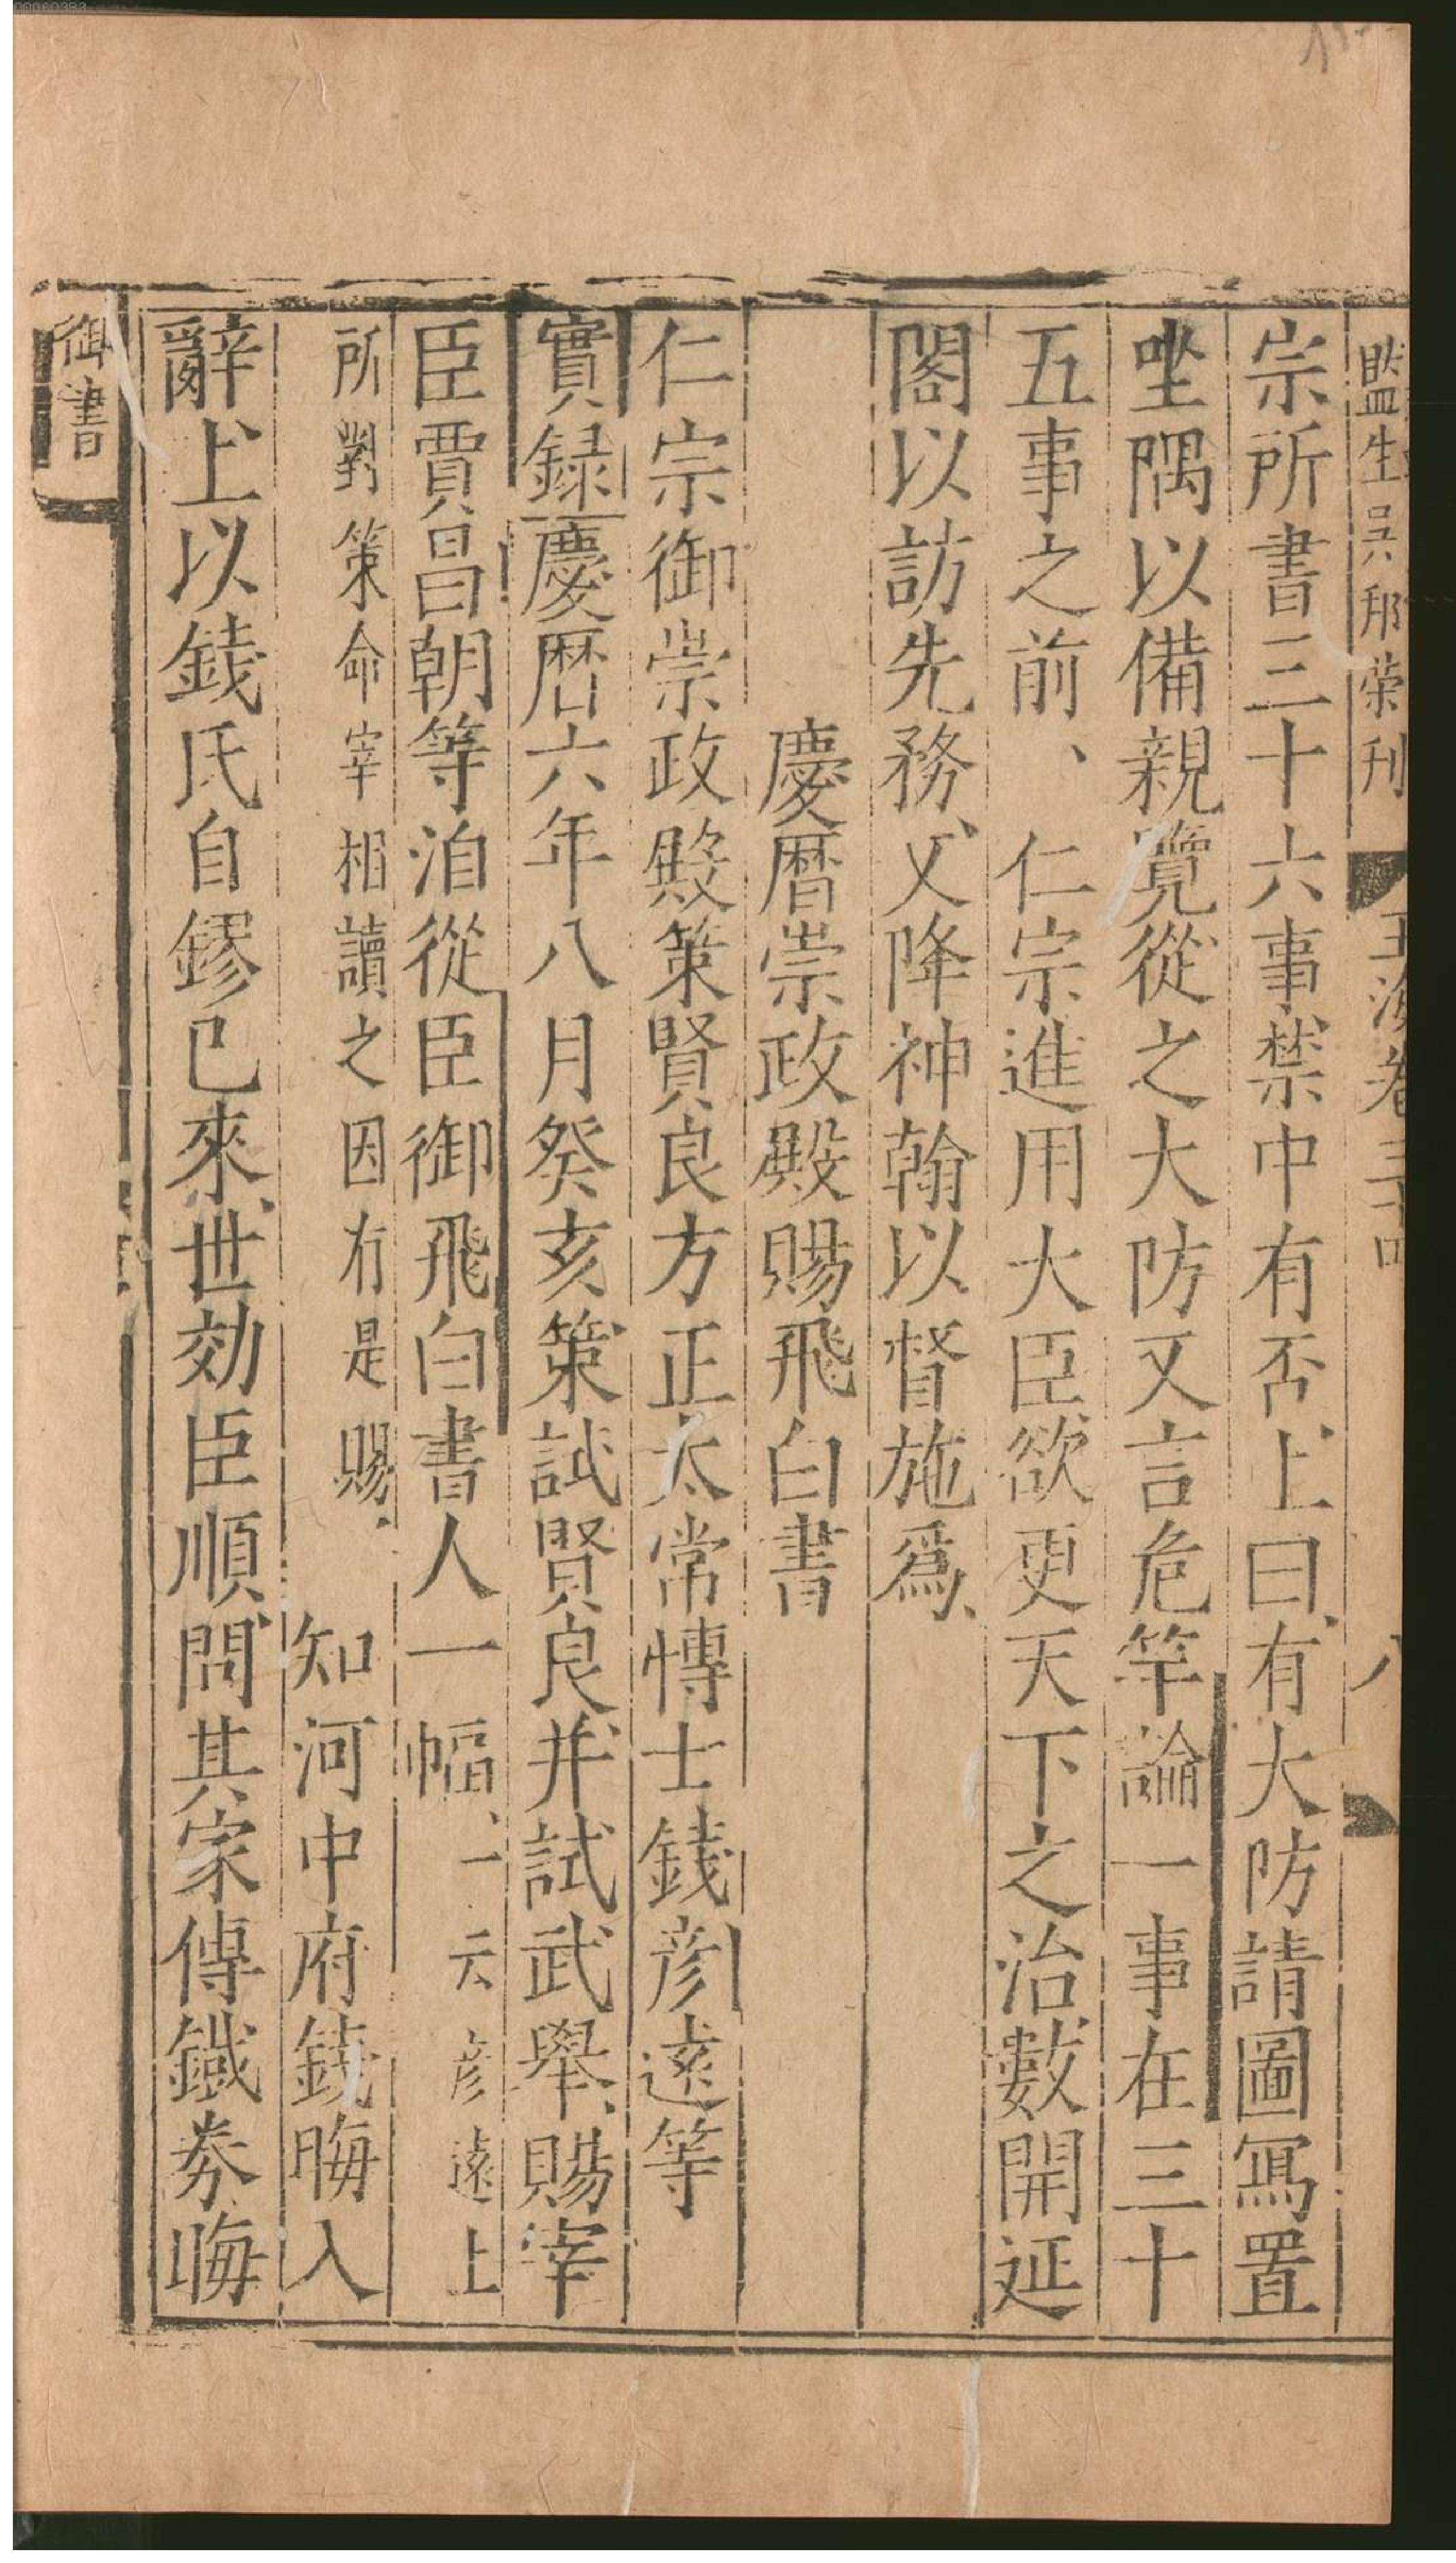 監生吳那荣刋
玉海卷三十四
八
宗所書三十六事禁中有否上曰有大防請圖寫置
坐隅以備親覽從之大防又言危竿論一事在三十
五事之前、仁宗進用大臣欲更天下之治數開延
閣以訪先務又降神翰以督施爲
慶曆崇政殿賜飛白書
仁宗御崇政殿策賢良方正太常愽士錢彦逺等
實録慶曆六年八月癸亥策試賢良并試武舉賜宰
臣賈昌朝等洎從臣御飛白書人一幅、一云彦遠上
所對策命宰相讀之因有是賜 知河中府錢晦入
辭上以錢氏自鏐已來世効臣順問其家傳鐵券晦
御書